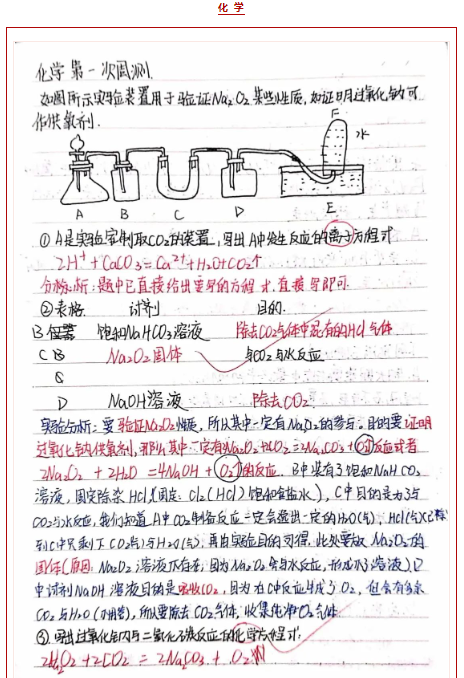 化 学
化学第一次周测.
如图所示实验装置用于验证Na₂O₂某些性质,如证明过氧化钠可
作供氧剂.
F
水
A B C D E
① A是实验室制取CO₂的装置,写出A中发生反应的离子方程式
2H⁺+CaCO₃=Ca²⁺+H₂O+CO₂↑
分析:题中已直接给出要写的方程式,直接写即可.
②表格 试剂 目的.
B 饱和NaHCO₃溶液 除去CO₂气体中混有的HCl气体
C Na₂O₂固体 与CO₂与水反应
D NaOH溶液 除去CO₂
实验分析:要验证Na₂O₂性质,所以其中一定有Na₂O₂的参与.目的要证明
过氧化钠供氧剂,那么其中一定有2Na₂O₂+2CO₂=2Na₂CO₃+O₂反应或者
2Na₂O₂+2H₂O=4NaOH+O₂的反应. B中装有了饱和NaHCO₃
溶液,固定除杂HCl(固定:Cl₂(HCl)饱和食盐水),C中目的是为了与
CO₂与水反应,我们知道A中CO₂制备反应一定会逸出一定的H₂O(气),HCl(气)(已除)
到C中只剩下CO₂(气)与H₂O(气),再由实验目的可得,此处要放Na₂O₂的
固体(原因:Na₂O₂溶液不存在,因为Na₂O₂会与水反应,形成溶液)D
中试剂NaOH溶液目的是吸收CO₂,因为在C中反应生成了O₂,但会有多余
CO₂与H₂O,所以要除去CO₂气体,收集纯净O₂气体.
③写出过氧化钠与二氧化碳反应的化学方程式:
2Na₂O₂+2CO₂=2Na₂CO₃+O₂